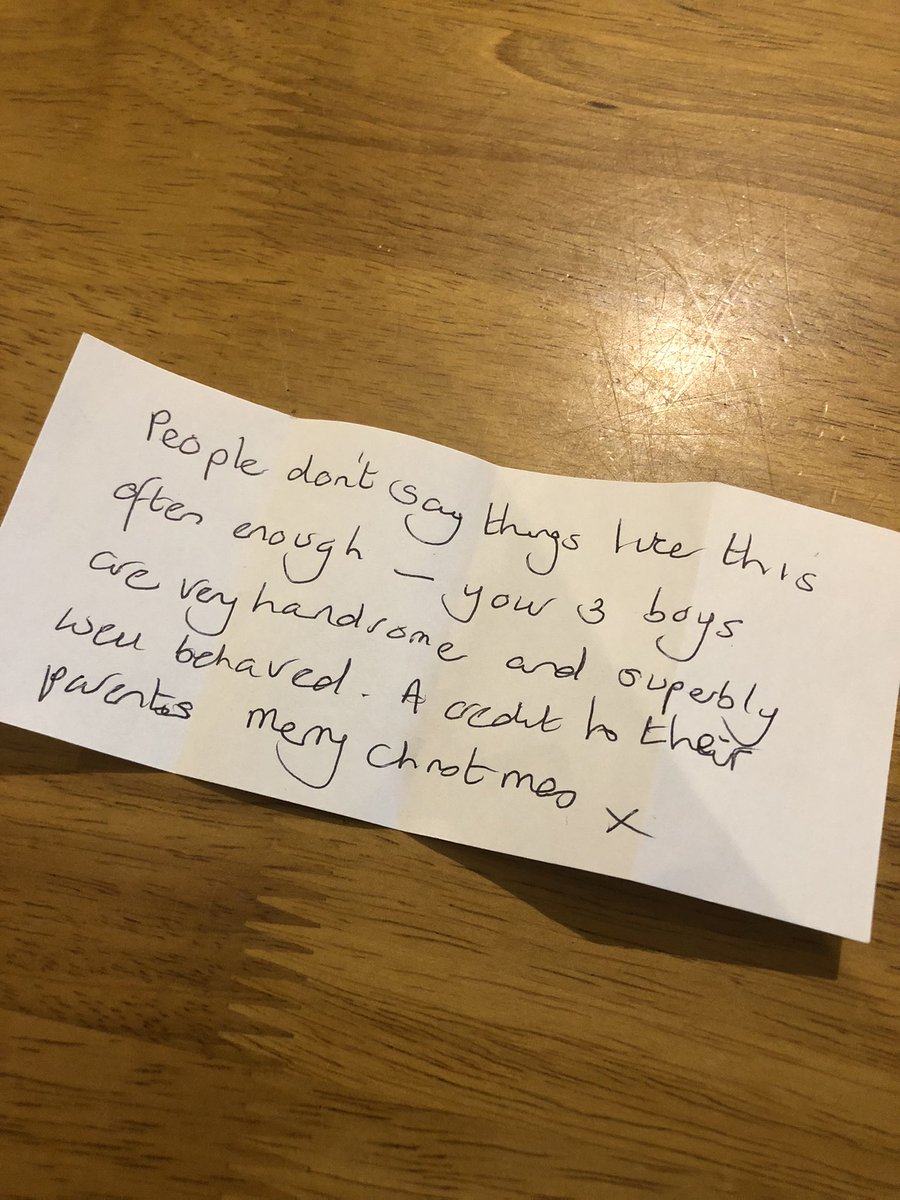 People don't say things like this
often enough – your 3 boys
are very handsome and superbly
well behaved. A credit to their
parents Merry Christmas X